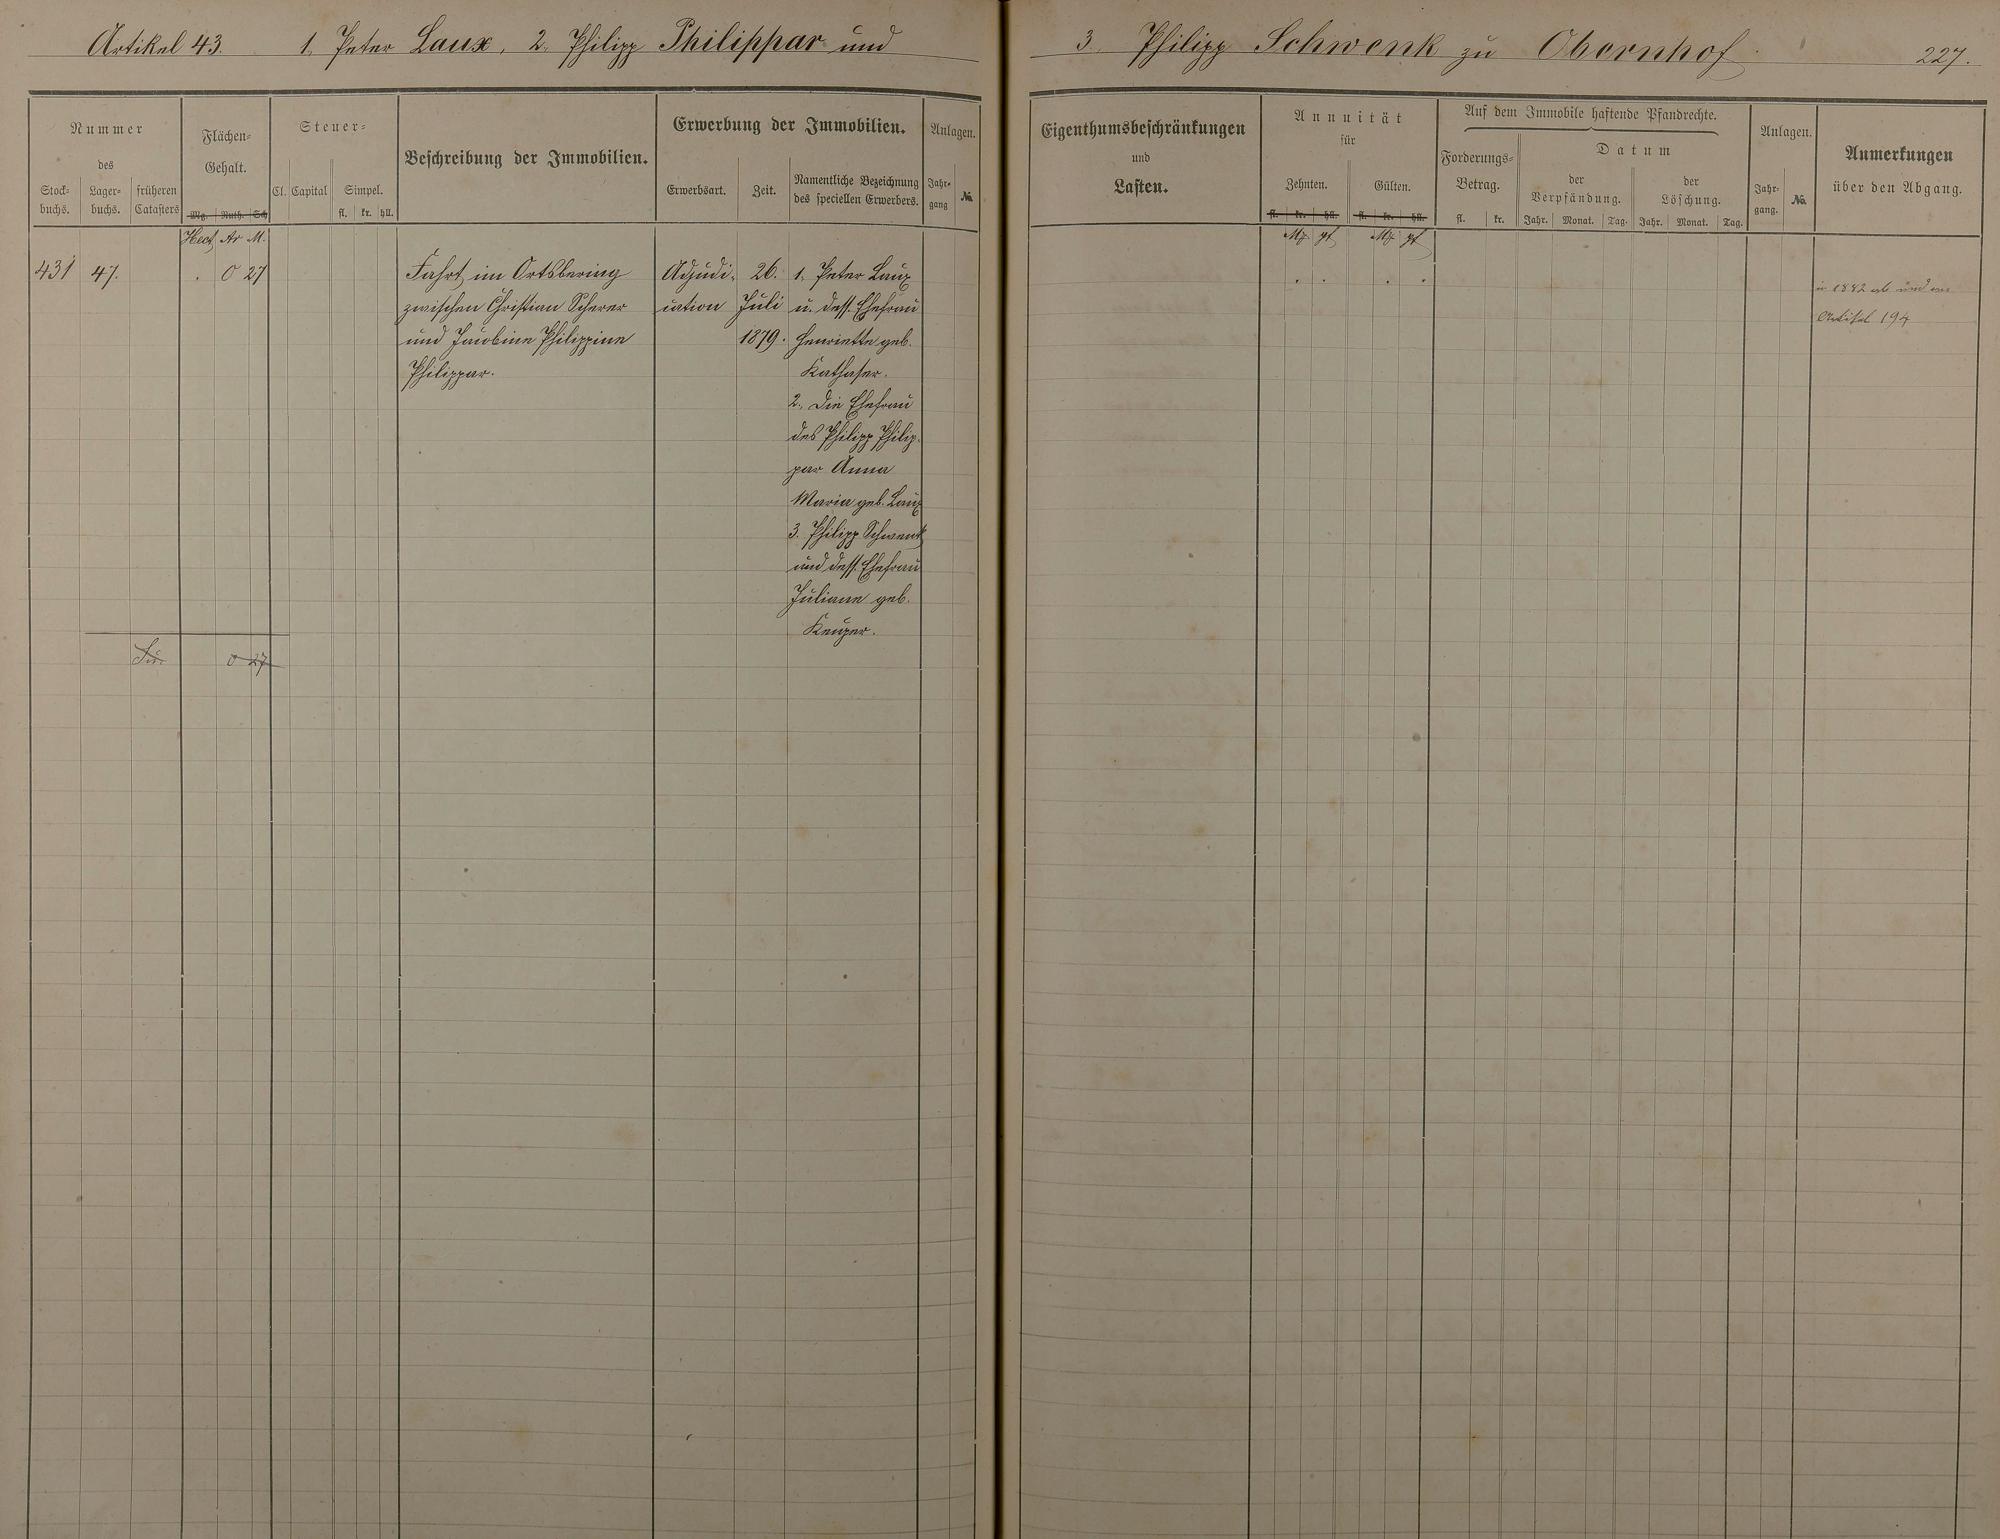 Artikel 43. 1. Peter Laux, 2. Philipp Philippar und
3. Philipp Schwenk zu Obernhof.
227.
Nummer
des
Stock-
buchs.
Lager-
buchs.
früheren
Catasters
Flächen-
Gehalt.
Mg. Ruth. Sch
Steuer-
Cl. Capital
Simpel.
fl. kr. hll.
Beschreibung der Immobilien.
Erwerbung der Immobilien.
Erwerbsart.
Zeit.
Namentliche Bezeichnung
des speciellen Erwerbers.
Anlagen.
Jahr-
gang
No.
Hect Ar M.
431 47. . 0 27
Fahrt im Ortsbering
zwischen Christian Scherer
und Jacobine Philippine
Philippar.
Adjudi-
cation
26.
Juli
1879.
1. Peter Laux
u. dess. Ehefrau
Henriette geb.
Kathaser.
2. Die Ehefrau
des Philipp Philip-
par Anna
Maria geb. Laux
3. Philipp Schwenk
und dess. Ehefrau
Juliane geb.
Keuper.
0 27
Eigenthumsbeschränkungen
und
Lasten.
Annuität
für
Zehnten.
Gülten.
fl. kr. hll. fl. kr. hll.
Mk pf Mk pf
Auf dem Immobile haftende Pfandrechte.
Forderungs-
Betrag.
fl. kr.
Datum
der
Verpfändung.
Jahr. Monat. Tag.
der
Löschung.
Jahr. Monat. Tag.
Anlagen.
Jahr-
gang.
No.
Anmerkungen
über den Abgang.
in 1882 ab und an
Artikel 194